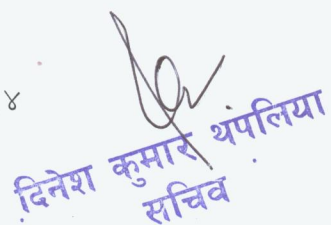 ४
दिनेश कुमार थपलिया
सचिव